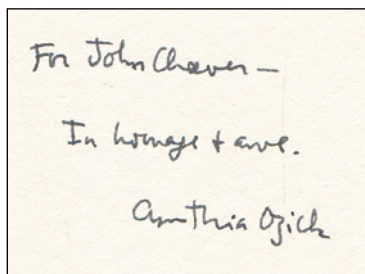 For John Cheever —
In homage + awe.
Cynthia Ozick